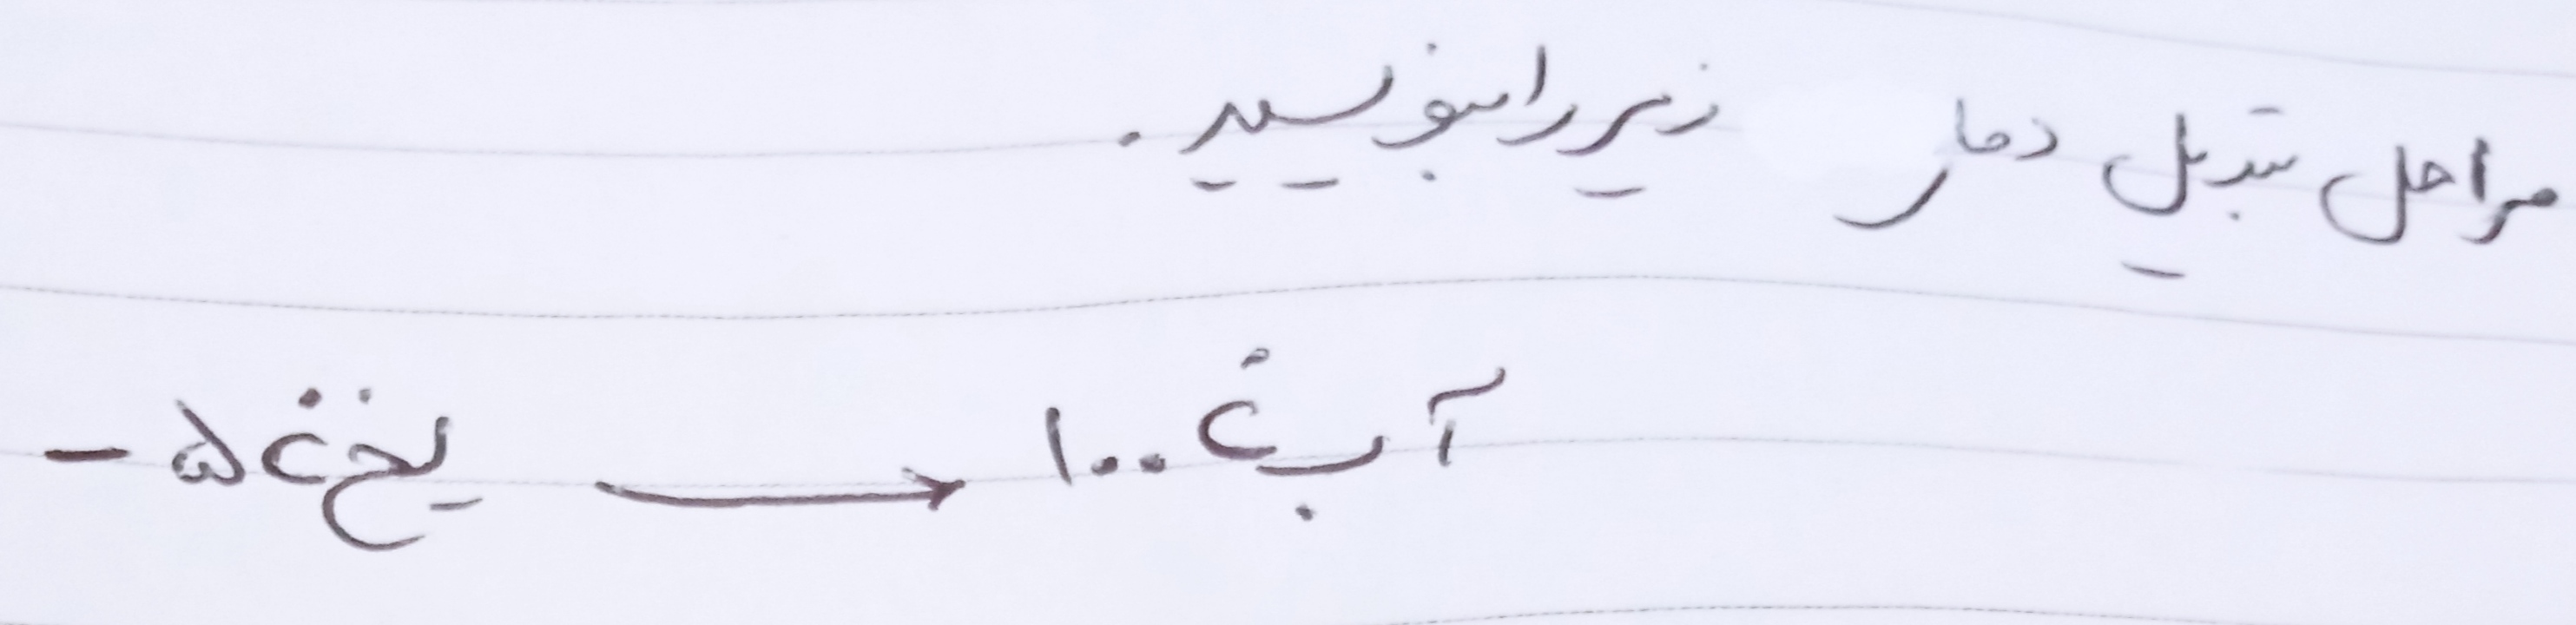 مراحل تبدیل دمای زیر را بنویسید.
یخ ‎-۵°C → آب ۱۰۰°C